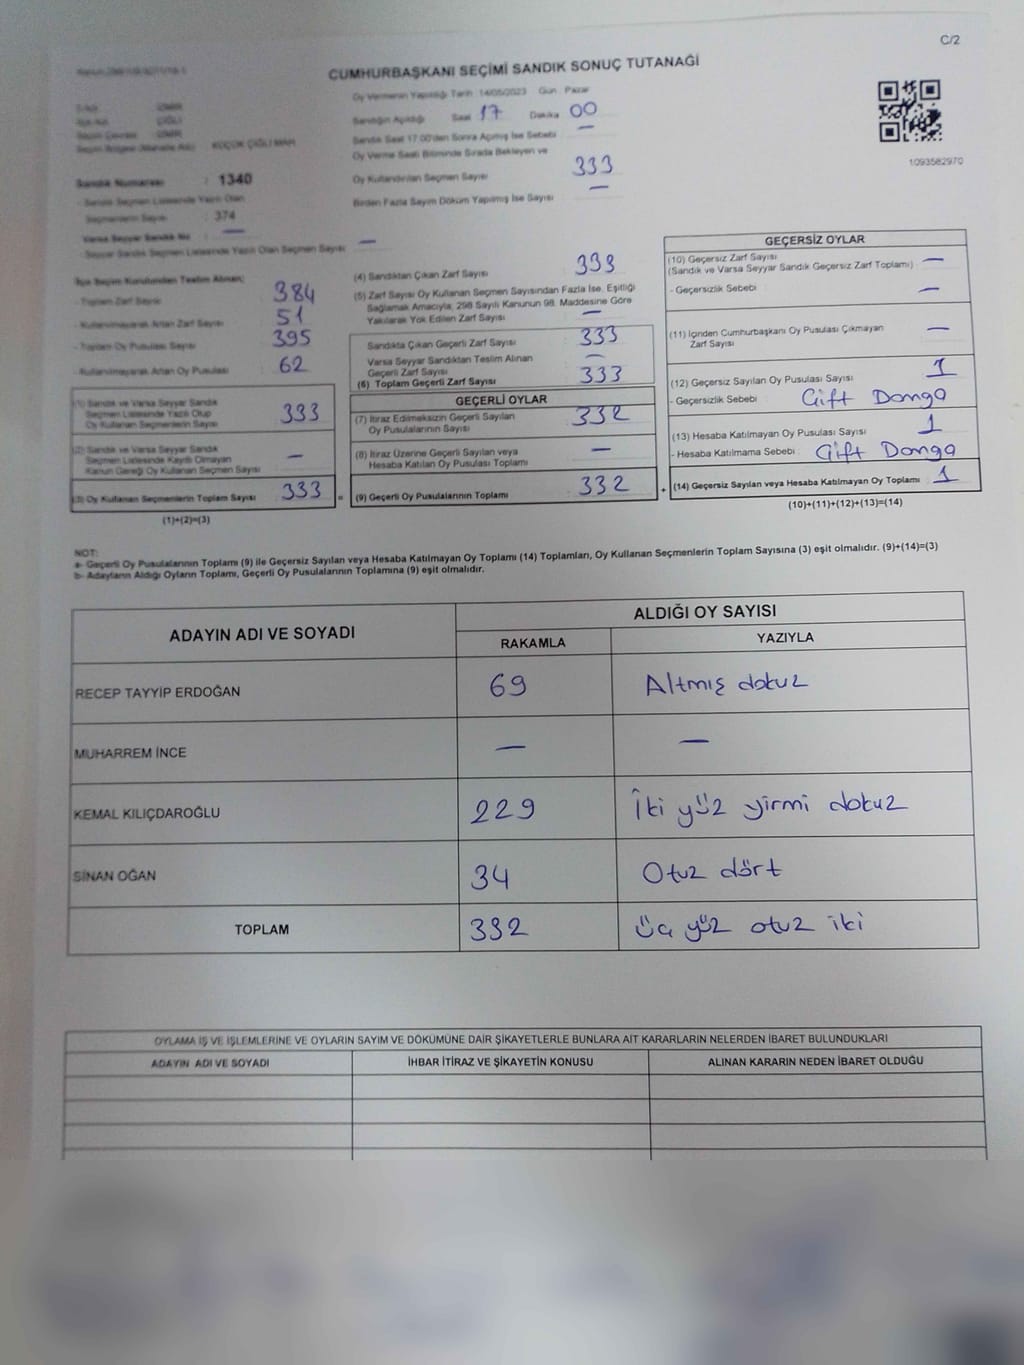 C/2
CUMHURBAŞKANI SEÇİMİ SANDIK SONUÇ TUTANAĞI
Oy Vermenin Yapıldığı Tarih : 14/05/2023 Gün : Pazar
Sandığın Açıldığı Saat 17 Dakika 00
Sandık Saat 17.00'den Sonra Açılmış İse Sebebi —
Oy Verme Saati Bitiminde Sırada Bekleyen ve
Oy Kullandırılan Seçmen Sayısı 333
Birden Fazla Sayım Döküm Yapılmış İse Sayısı —
1093582970
İZMİR
ÇİĞLİ
İZMİR
KÜÇÜK ÇİĞLİ MAH
Sandık Numarası : 1340
- Sandık Seçmen Listesinde Yazılı Olan
Seçmenlerin Sayısı : 374
Varsa Seyyar Sandık No : —
- Seyyar Sandık Seçmen Listesinde Yazılı Olan Seçmen Sayısı : —
İlçe Seçim Kurulundan Teslim Alınan;
- Toplam Zarf Sayısı 384
- Kullanılmayarak Artan Zarf Sayısı 51
- Toplam Oy Pusulası Sayısı 395
- Kullanılmayarak Artan Oy Pusulası 62
(1) Sandık ve Varsa Seyyar Sandık
Seçmen Listesinde Yazılı Olup
Oy Kullanan Seçmenlerin Sayısı 333
(2) Sandık ve Varsa Seyyar Sandık
Seçmen Listesinde Kayıtlı Olmayan
Kanun Gereği Oy Kullanan Seçmen Sayısı —
(3) Oy Kullanan Seçmenlerin Toplam Sayısı 333 =
(1)+(2)=(3)
(4) Sandıktan Çıkan Zarf Sayısı 333
(5) Zarf Sayısı Oy Kullanan Seçmen Sayısından Fazla İse, Eşitliği
Sağlamak Amacıyla, 298 Sayılı Kanunun 98. Maddesine Göre
Yakılarak Yok Edilen Zarf Sayısı —
Sandıkta Çıkan Geçerli Zarf Sayısı 333
Varsa Seyyar Sandıktan Teslim Alınan
Geçerli Zarf Sayısı —
(6) Toplam Geçerli Zarf Sayısı 333
GEÇERLİ OYLAR
(7) İtiraz Edilmeksizin Geçerli Sayılan
Oy Pusulalarının Sayısı 332
(8) İtiraz Üzerine Geçerli Sayılan veya
Hesaba Katılan Oy Pusulası Toplamı —
(9) Geçerli Oy Pusulalarının Toplamı 332 +
GEÇERSİZ OYLAR
(10) Geçersiz Zarf Sayısı
(Sandık ve Varsa Seyyar Sandık Geçersiz Zarf Toplamı) —
- Geçersizlik Sebebi : —
(11) İçinden Cumhurbaşkanı Oy Pusulası Çıkmayan
Zarf Sayısı —
(12) Geçersiz Sayılan Oy Pusulası Sayısı 1
- Geçersizlik Sebebi : Çift Damga
(13) Hesaba Katılmayan Oy Pusulası Sayısı 1
- Hesaba Katılmama Sebebi : Çift Damga
(14) Geçersiz Sayılan veya Hesaba Katılmayan Oy Toplamı 1
(10)+(11)+(12)+(13)=(14)
NOT:
a- Geçerli Oy Pusulalarının Toplamı (9) ile Geçersiz Sayılan veya Hesaba Katılmayan Oy Toplamı (14) Toplamları, Oy Kullanan Seçmenlerin Toplam Sayısına (3) eşit olmalıdır. (9)+(14)=(3)
b- Adayların Aldığı Oyların Toplamı, Geçerli Oy Pusulalarının Toplamına (9) eşit olmalıdır.
ADAYIN ADI VE SOYADI
ALDIĞI OY SAYISI
RAKAMLA YAZIYLA
RECEP TAYYİP ERDOĞAN 69 Altmış dokuz
MUHARREM İNCE — —
KEMAL KILIÇDAROĞLU 229 İki yüz yirmi dokuz
SİNAN OĞAN 34 Otuz dört
TOPLAM 332 üç yüz otuz iki
OYLAMA İŞ VE İŞLEMLERİNE VE OYLARIN SAYIM VE DÖKÜMÜNE DAİR ŞİKAYETLERLE BUNLARA AİT KARARLARIN NELERDEN İBARET BULUNDUKLARI
ADAYIN ADI VE SOYADI İHBAR İTİRAZ VE ŞİKAYETİN KONUSU ALINAN KARARIN NEDEN İBARET OLDUĞU